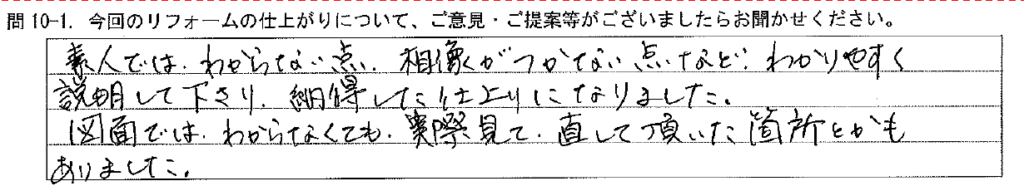 問10-1. 今回のリフォームの仕上がりについて、ご意見・ご提案等がございましたらお聞かせください。
素人では、わからない点、相像がつかない点など、わかりやすく
説明して下さり、納得した仕上りになりました。
図面では、わからなくても、実際見て、直して頂いた箇所とかも
ありました。